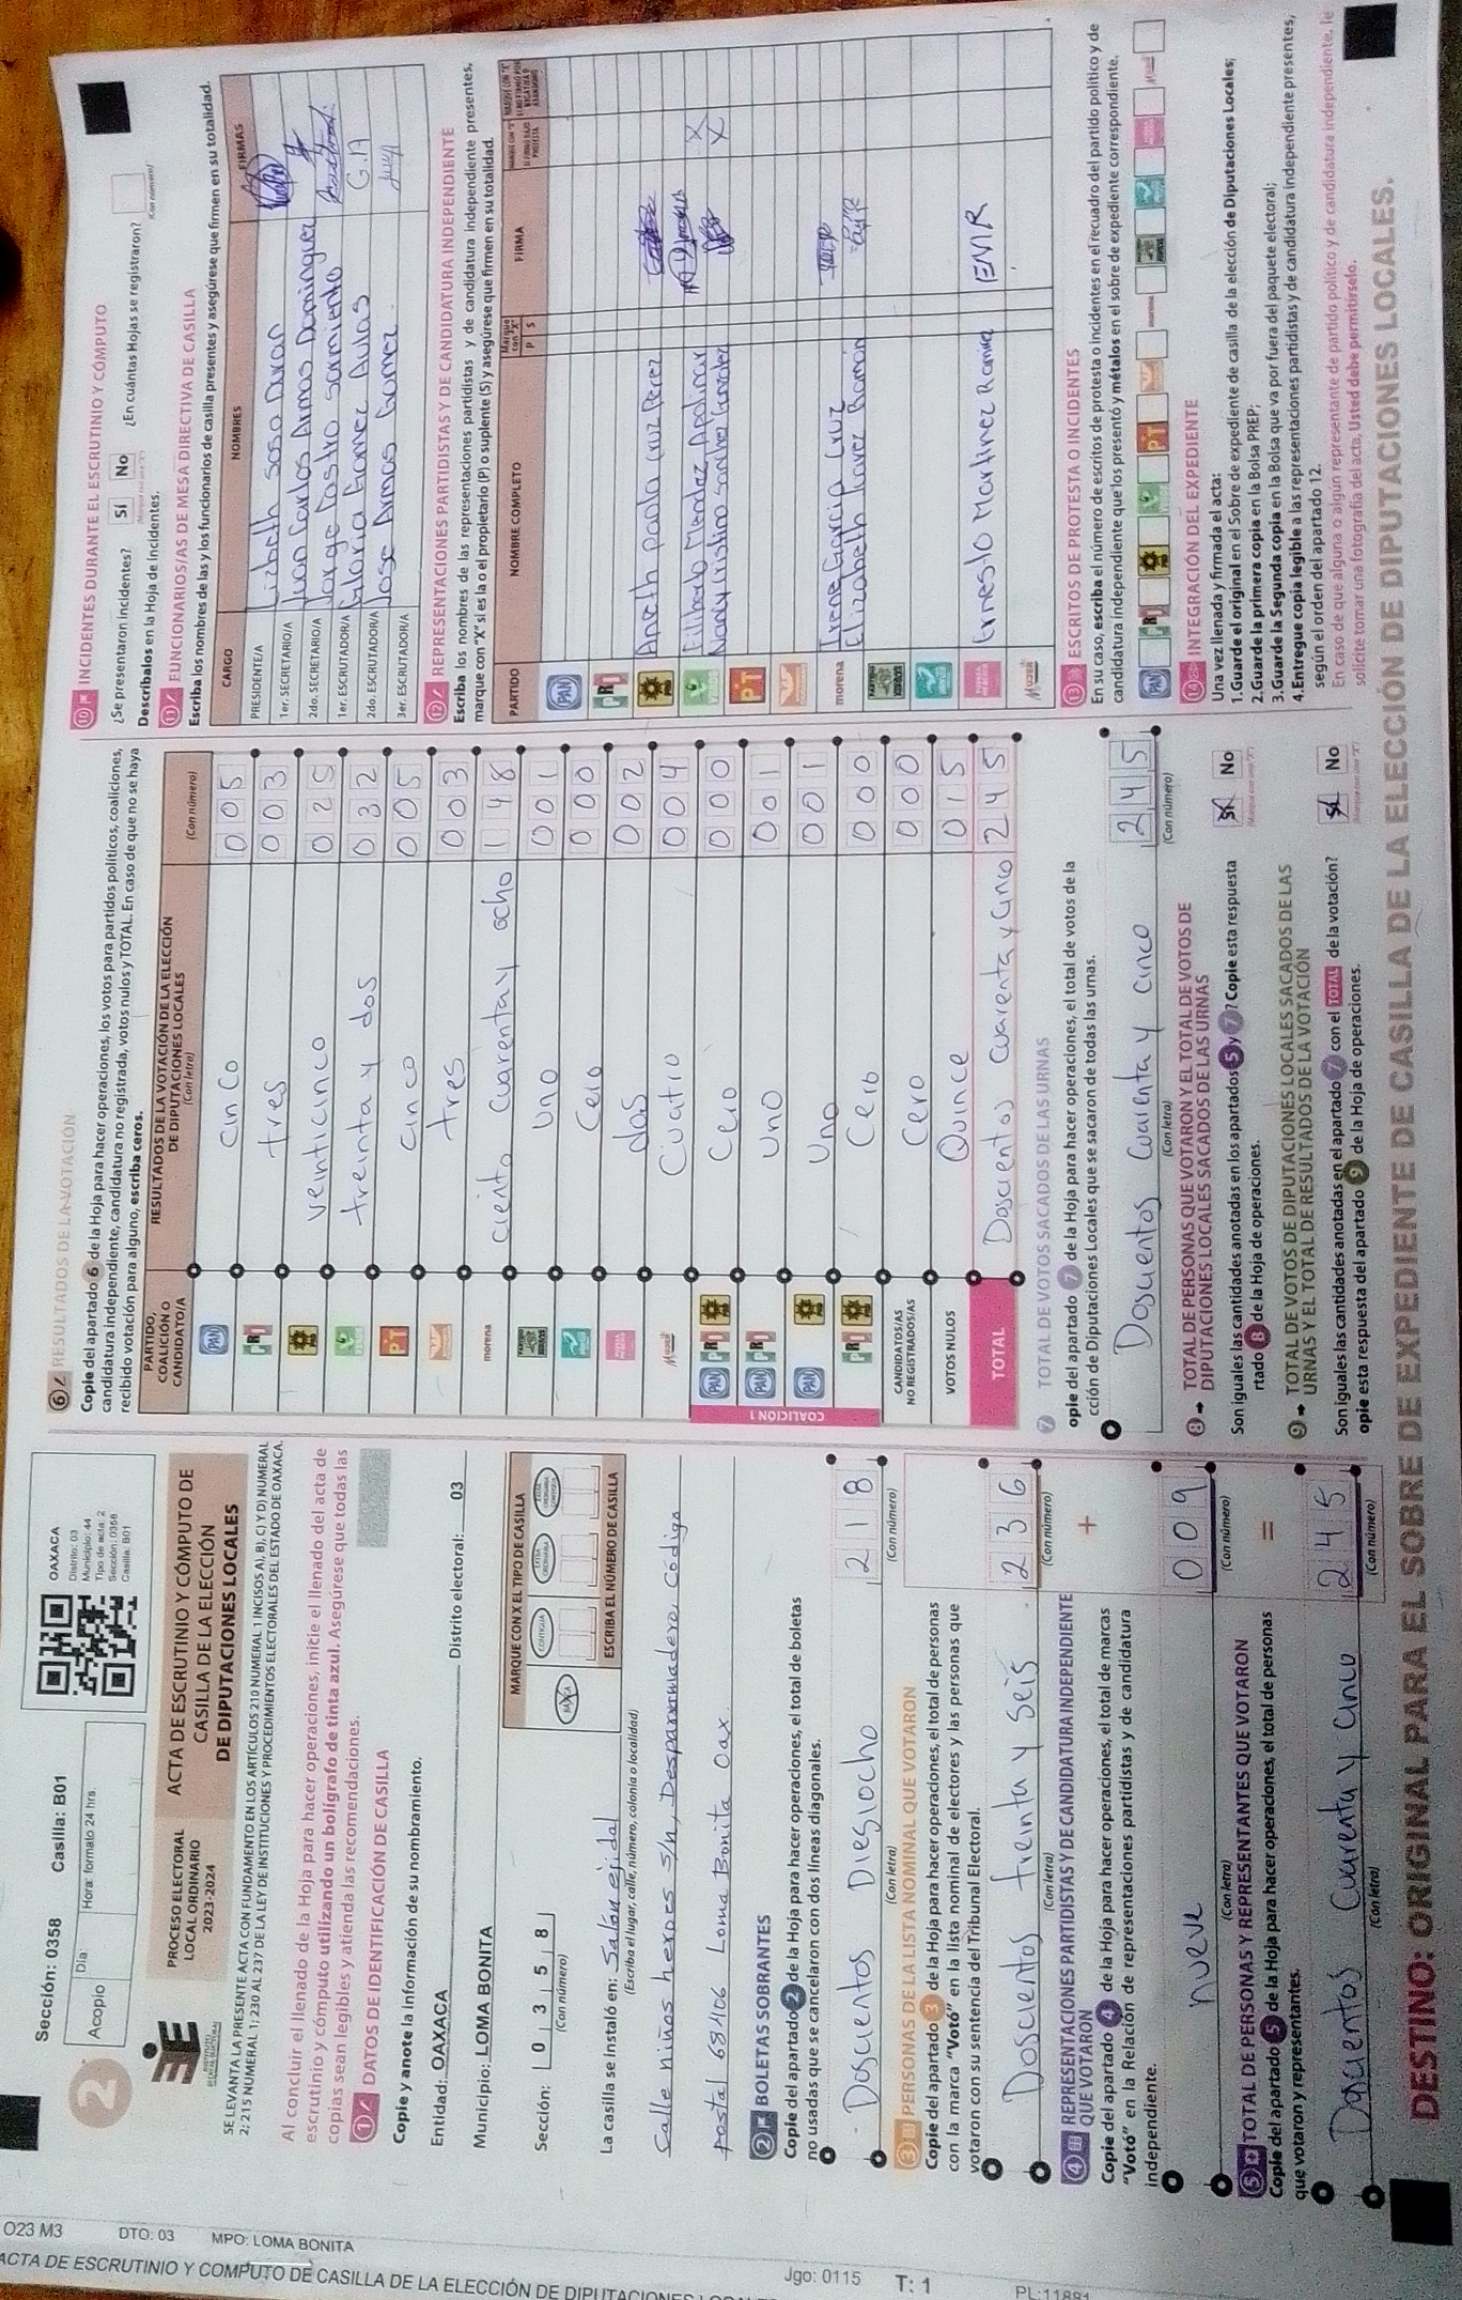 O23 M3
DTO. 03
MPO: LOMA BONITA
ACTA DE ESCRUTINIO Y COMPUTO DE CASILLA DE LA ELECCIÓN DE DIPUTACIONES
Jgo: 0115
T: 1
PL:11881
2
Sección: 0358 Casilla: B01
Acopio
Día:
Hora: formato 24 hrs.
OAXACA
Distrito: 03
Municipio: 44
Tipo de acta: 2
Sección: 0358
Casilla: B01
PROCESO ELECTORAL
LOCAL ORDINARIO
2023-2024
ACTA DE ESCRUTINIO Y CÓMPUTO DE
CASILLA DE LA ELECCIÓN
DE DIPUTACIONES LOCALES
SE LEVANTA LA PRESENTE ACTA CON FUNDAMENTO EN LOS ARTÍCULOS 210 NUMERAL 1 INCISOS A), B), C) Y D) NUMERAL
2; 215 NUMERAL 1; 230 AL 237 DE LA LEY DE INSTITUCIONES Y PROCEDIMIENTOS ELECTORALES DEL ESTADO DE OAXACA.
Al concluir el llenado de la Hoja para hacer operaciones, inicie el llenado del acta de
escrutinio y cómputo utilizando un bolígrafo de tinta azul. Asegúrese que todas las
copias sean legibles y atienda las recomendaciones.
1 DATOS DE IDENTIFICACIÓN DE CASILLA
Copie y anote la información de su nombramiento.
Entidad: OAXACA Distrito electoral: 03
Municipio: LOMA BONITA
Sección: 0 3 5 8
(Con número)
MARQUE CON X EL TIPO DE CASILLA
BÁSICA
CONTIGUA
ESCRIBA EL NÚMERO DE CASILLA
La casilla se instaló en: Salón ejidal
(Escriba el lugar, calle, número, colonia o localidad)
calle niños heroes s/n, Desparramadero, Código
postal 68406 Loma Bonita Oax.
2 BOLETAS SOBRANTES
Copie del apartado 2 de la Hoja para hacer operaciones, el total de boletas
no usadas que se cancelaron con dos líneas diagonales.
Doscientos Diesiocho 2 1 8
(Con letra) (Con número)
3 PERSONAS DE LA LISTA NOMINAL QUE VOTARON
Copie del apartado 3 de la Hoja para hacer operaciones, el total de personas
con la marca "Votó" en la lista nominal de electores y las personas que
votaron con su sentencia del Tribunal Electoral.
Doscientos treinta y seis 2 3 6
(Con letra) (Con número)
+
4 REPRESENTACIONES PARTIDISTAS Y DE CANDIDATURA INDEPENDIENTE
QUE VOTARON
Copie del apartado 4 de la Hoja para hacer operaciones, el total de marcas
"Votó" en la Relación de representaciones partidistas y de candidatura
independiente.
nueve 0 0 9
(Con letra) (Con número)
=
5 TOTAL DE PERSONAS Y REPRESENTANTES QUE VOTARON
Copie del apartado 5 de la Hoja para hacer operaciones, el total de personas
que votaron y representantes.
Doscientos Cuarenta y Cinco 2 4 5
(Con letra) (Con número)
6 RESULTADOS DE LA VOTACIÓN
Copie del apartado 6 de la Hoja para hacer operaciones, los votos para partidos políticos, coaliciones,
candidatura independiente, candidatura no registrada, votos nulos y TOTAL. En caso de que no se haya
recibido votación para alguno, escriba ceros.
PARTIDO,
COALICIÓN O
CANDIDATO/A
RESULTADOS DE LA VOTACIÓN DE LA ELECCIÓN
DE DIPUTACIONES LOCALES
(Con letra) (Con número)
PAN cinco 0 0 5
PRI tres 0 0 3
PRD veinticinco 0 2 5
treinta y dos 0 3 2
PT cinco 0 0 5
tres 0 0 3
morena ciento cuarenta y ocho 1 4 8
uno 0 0 1
Cero 0 0 0
dos 0 0 2
MUJER Cuatro 0 0 4
COALICIÓN 1
PAN PRI PRD Cero 0 0 0
PAN PRI Uno 0 0 1
PAN PRD Uno 0 0 1
PRI PRD Cero 0 0 0
CANDIDATOS/AS
NO REGISTRADOS/AS Cero 0 0 0
VOTOS NULOS Quince 0 1 5
TOTAL Doscientos Cuarenta y Cinco 2 4 5
7 TOTAL DE VOTOS SACADOS DE LAS URNAS
opie del apartado 7 de la Hoja para hacer operaciones, el total de votos de la
cción de Diputaciones Locales que se sacaron de todas las urnas.
Doscientos Cuarenta y Cinco 2 4 5
(Con letra) (Con número)
8 TOTAL DE PERSONAS QUE VOTARON Y EL TOTAL DE VOTOS DE
DIPUTACIONES LOCALES SACADOS DE LAS URNAS
Son iguales las cantidades anotadas en los apartados 5 y 7? Copie esta respuesta
rtado 8 de la Hoja de operaciones.
Sí No
9 TOTAL DE VOTOS DE DIPUTACIONES LOCALES SACADOS DE LAS
URNAS Y EL TOTAL DE RESULTADOS DE LA VOTACIÓN
Son iguales las cantidades anotadas en el apartado 7 con el TOTAL de la votación?
opie esta respuesta del apartado 9 de la Hoja de operaciones.
Sí No
10 INCIDENTES DURANTE EL ESCRUTINIO Y CÓMPUTO
¿Se presentaron incidentes? Sí No ¿En cuántas Hojas se registraron?
(Con número)
Descríbalos en la Hoja de Incidentes.
11 FUNCIONARIOS/AS DE MESA DIRECTIVA DE CASILLA
Escriba los nombres de las y los funcionarios de casilla presentes y asegúrese que firmen en su totalidad.
CARGO NOMBRES FIRMAS
PRESIDENTE/A Lizbeth Sosa Duran
1er. SECRETARIO/A Juan Carlos Armas Dominguez
2do. SECRETARIO/A Jorge Castro sarmiento
1er. ESCRUTADOR/A Gloria Gomez Avilas G.A
2do. ESCRUTADOR/A Jose Amos Gomez
3er. ESCRUTADOR/A
12 REPRESENTACIONES PARTIDISTAS Y DE CANDIDATURA INDEPENDIENTE
Escriba los nombres de las representaciones partidistas y de candidatura independiente presentes,
marque con "X" si es la o el propietario (P) o suplente (S) y asegúrese que firmen en su totalidad.
PARTIDO NOMBRE COMPLETO Marque con "X" P S FIRMA
PAN
PRI
PRD Aneth paola cruz Perez
Filiberto Mendez Apolinar X
Nancy cristina Sanchez Gonzalez X
PT
morena Irene Garcia Cruz
Elizabeth Chavez Ramón
Ernesto Martinez Ramirez EMR
MUJER
13 ESCRITOS DE PROTESTA O INCIDENTES
En su caso, escriba el número de escritos de protesta o incidentes en el recuadro del partido político y de
candidatura independiente que los presentó y métalos en el sobre de expediente correspondiente.
PAN PRI PRD PT morena
14 INTEGRACIÓN DEL EXPEDIENTE
Una vez llenada y firmada el acta:
1.Guarde el original en el Sobre de expediente de casilla de la elección de Diputaciones Locales;
2.Guarde la primera copia en la Bolsa PREP;
3.Guarde la Segunda copia en la Bolsa que va por fuera del paquete electoral;
4.Entregue copia legible a las representaciones partidistas y de candidatura independiente presentes,
según el orden del apartado 12.
En caso de que alguna o algún representante de partido político y de candidatura independiente, le
solicite tomar una fotografía del acta, Usted debe permitírselo.
DESTINO: ORIGINAL PARA EL SOBRE DE EXPEDIENTE DE CASILLA DE LA ELECCIÓN DE DIPUTACIONES LOCALES.